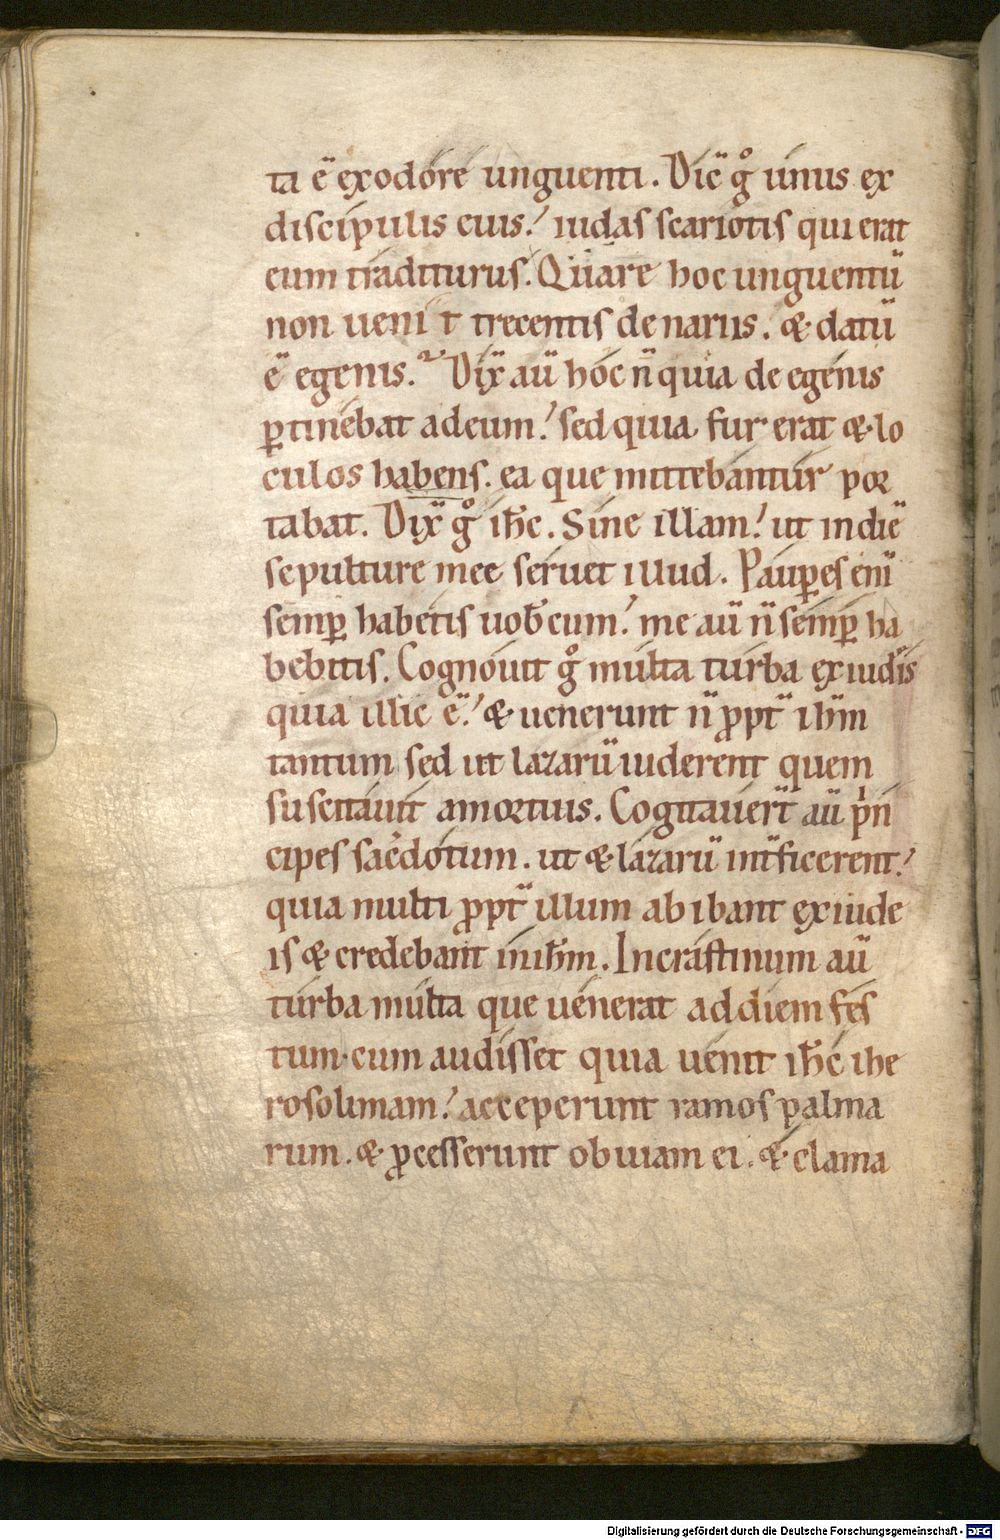 ta ē exodore unguenti. Dic̄ gͦ unus ex
discipulis eius. iudas scariotis qui erat
eum traditurus. Quare hoc unguentū
non ueniit trecentis denariis. & datū
ē egenis. Dix̄ aū hoc n̄ quia de egenis
ꝑtinebat adeum. sed quia fur erat & lo
culos habens. ea que mittebantur por
tabat. Dix̄ gͦ ih̄c. Sine illam. ut indiē
sepulture mee seruet illud. Pauꝑes eni̅
semꝑ habetis uob̄cum. me aū n̄ semꝑ ha
bebitis. Cognouit gͦ multa turba exiud̄is
quia illic ē. & uenerunt n̄ ꝓpt̄ ih̄m
tantum sed ut lazarū uiderent quem
suscitauit amortuis. Cogitauer̄t aū pⁱn
cipes sac̄dotum. ut & lazarū int̄ficerent.
quia multi ꝓpt̄ illum abibant exiude
is & credebant inih̄m. Incrastinum aū
turba multa que uenerat addiem fes
tum. cum audisset quia uenit ih̄c ihe
rosolimam. acceperunt ramos palma
rum. & ꝓcesserunt obuiam ei. & clama
Digitalisierung gefördert durch die Deutsche Forschungsgemeinschaft - DFG